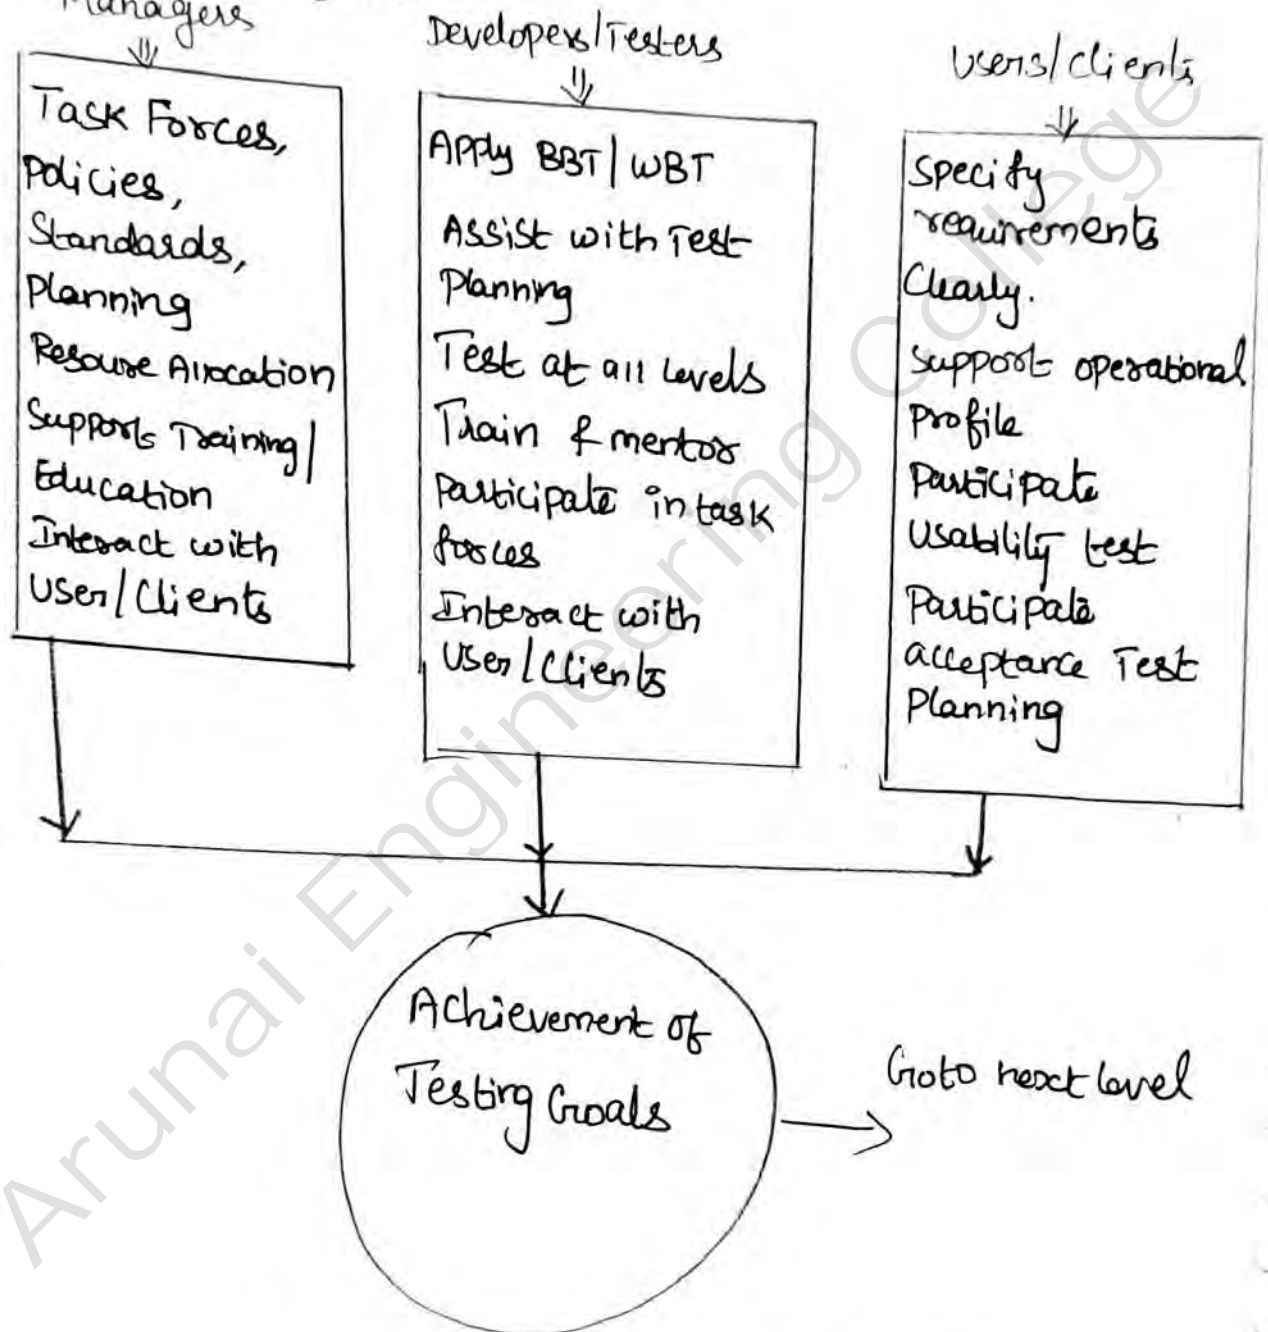 Managers
Task Forces,
Policies,
Standards,
Planning
Resoure Allocation
Supports Training/
Education
Interact with
User/Clients
Developers/Testers
Apply BBT/WBT
Assist with Test
Planning
Test at all Levels
Train & mentor
Participate in task
forces
Interact with
User/Clients
Users/Clients
Specify
requirements
Clearly.
Support operational
Profile
Participate
Usability test
Participate
acceptance Test
Planning
Achievement of
Testing Goals
Goto next level
Arunai Engineering College